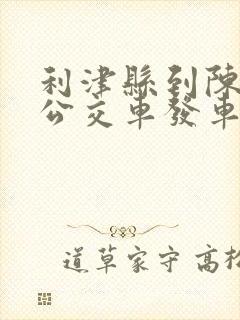 利津縣到陳
公交車發車
道草家守高松